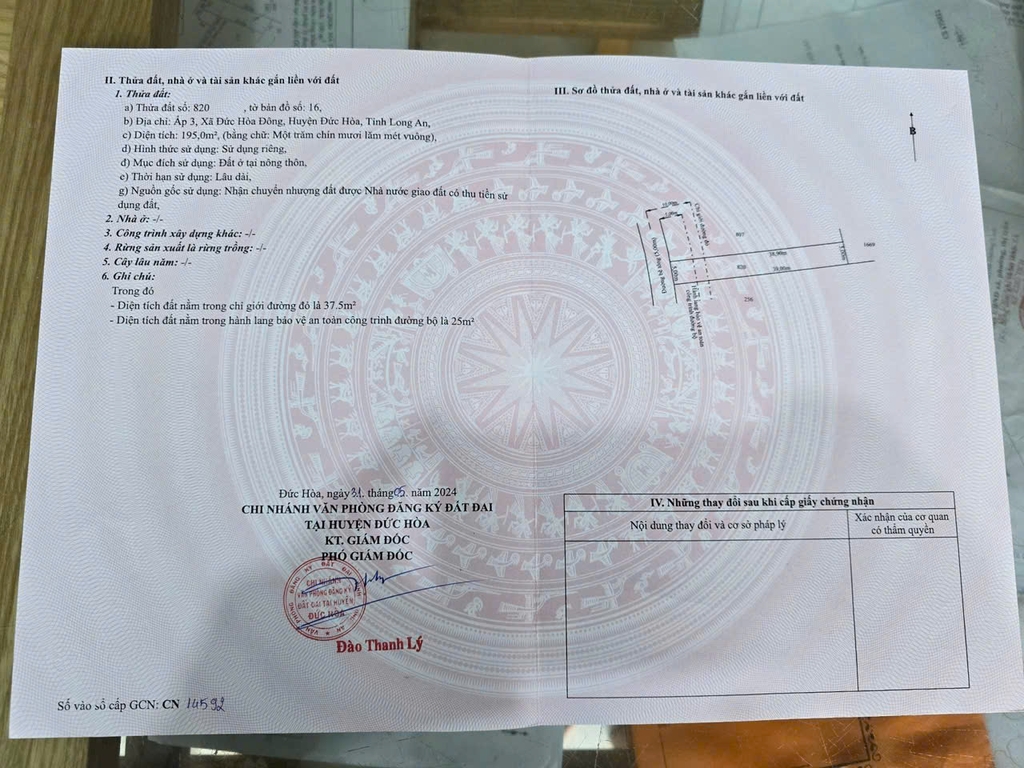 II. Thửa đất, nhà ở và tài sản khác gắn liền với đất
1. Thửa đất:
a) Thửa đất số: 820 , tờ bản đồ số: 16,
b) Địa chỉ: Ấp 3, Xã Đức Hòa Đông, Huyện Đức Hòa, Tỉnh Long An,
c) Diện tích: 195,0m², (bằng chữ: Một trăm chín mươi lăm mét vuông),
d) Hình thức sử dụng: Sử dụng riêng,
đ) Mục đích sử dụng: Đất ở tại nông thôn,
e) Thời hạn sử dụng: Lâu dài,
g) Nguồn gốc sử dụng: Nhận chuyển nhượng đất được Nhà nước giao đất có thu tiền sử
dụng đất,
2. Nhà ở: -/-
3. Công trình xây dựng khác: -/-
4. Rừng sản xuất là rừng trồng: -/-
5. Cây lâu năm: -/-
6. Ghi chú:
Trong đó
- Diện tích đất nằm trong chỉ giới đường đỏ là 37.5m²
- Diện tích đất nằm trong hành lang bảo vệ an toàn công trình đường bộ là 25m²
Đức Hòa, ngày 31 tháng 05. năm 2024
CHI NHÁNH VĂN PHÒNG ĐĂNG KÝ ĐẤT ĐAI
TẠI HUYỆN ĐỨC HÒA
KT. GIÁM ĐỐC
PHÓ GIÁM ĐỐC
CHI NHÁNH
VĂN PHÒNG ĐĂNG KÝ
ĐẤT ĐAI TẠI HUYỆN
ĐỨC HÒA
Đào Thanh Lý
Số vào sổ cấp GCN: CN 14592
III. Sơ đồ thửa đất, nhà ở và tài sản khác gắn liền với đất
B
Chỉ giới đường đỏ
807
1669
38,99m
5,00m
820
39,00m
256
Hành lang bảo vệ an toàn
công trình đường bộ
IV. Những thay đổi sau khi cấp giấy chứng nhận
Nội dung thay đổi và cơ sở pháp lý
Xác nhận của cơ quan
có thẩm quyền